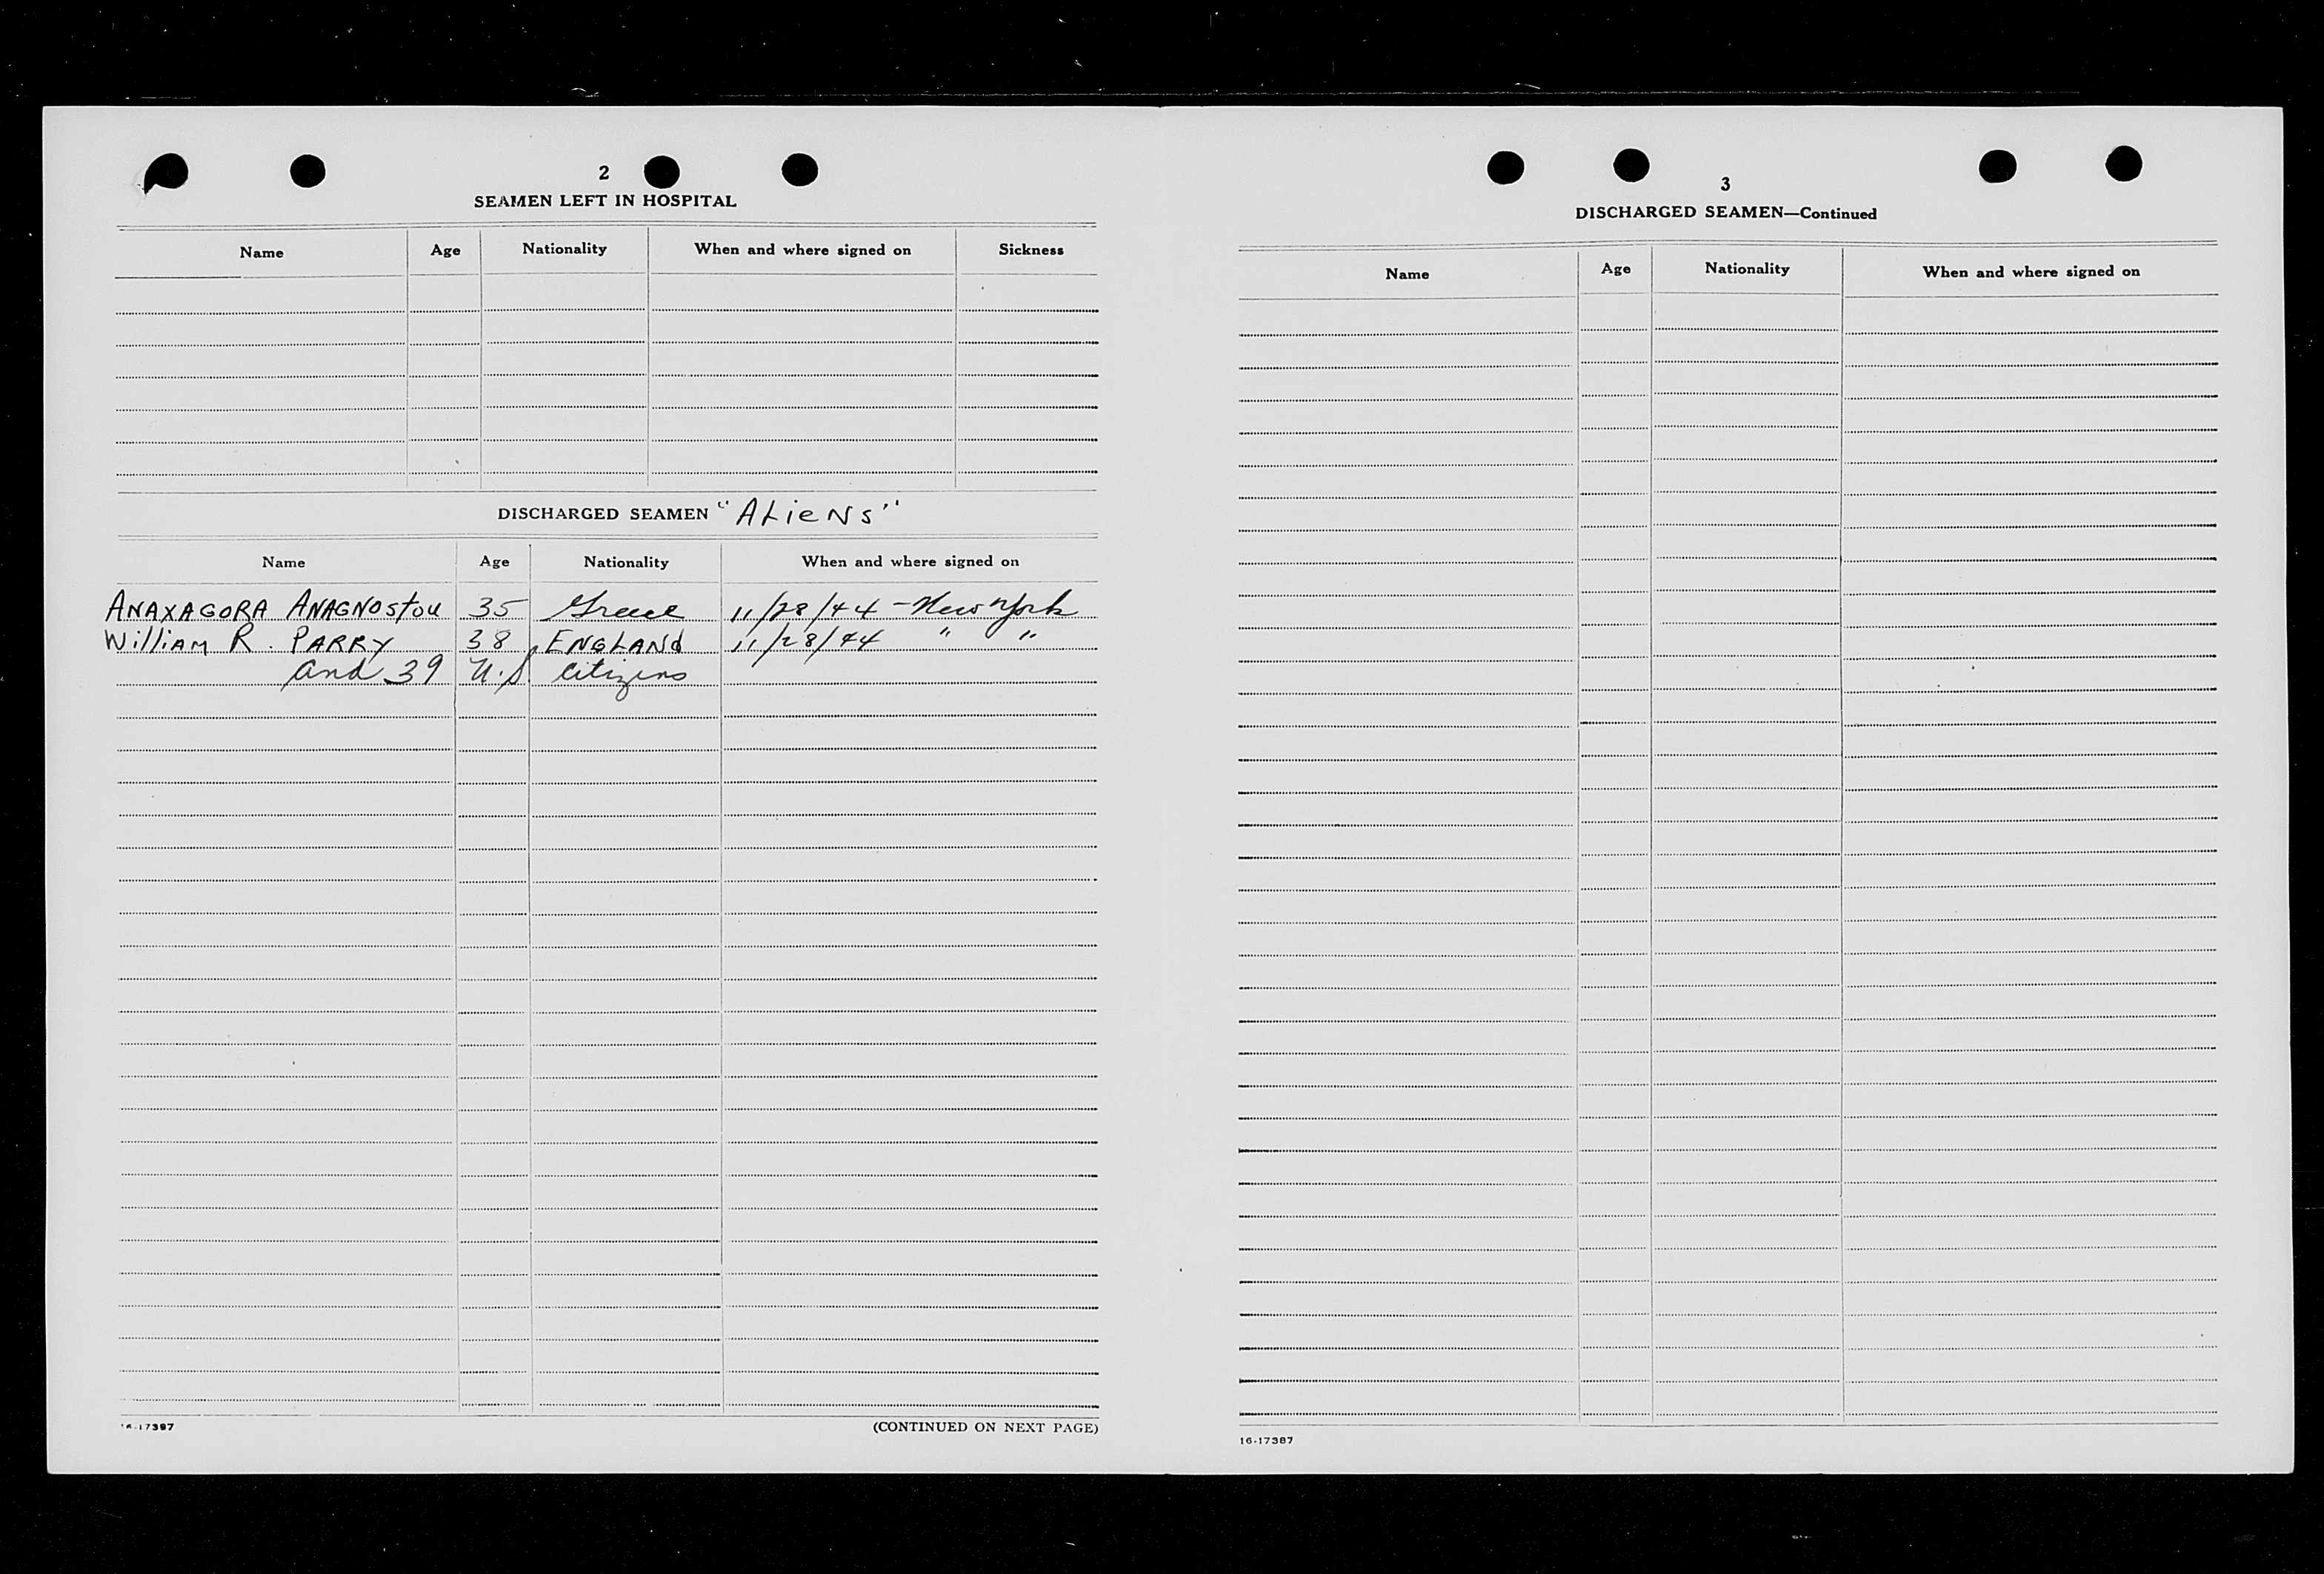 2
SEAMEN LEFT IN HOSPITAL
Name Age Nationality When and where signed on Sickness
DISCHARGED SEAMEN "ALieNs"
Name Age Nationality When and where signed on
ANAXAGORA ANAGNOstou 35 Greece 11/28/44 - New York
William R. PARRY 38 ENGLANd 11/28/44 " "
and 39 U.S citizens
16-17387
(CONTINUED ON NEXT PAGE)
3
DISCHARGED SEAMEN—Continued
Name Age Nationality When and where signed on
16-17387